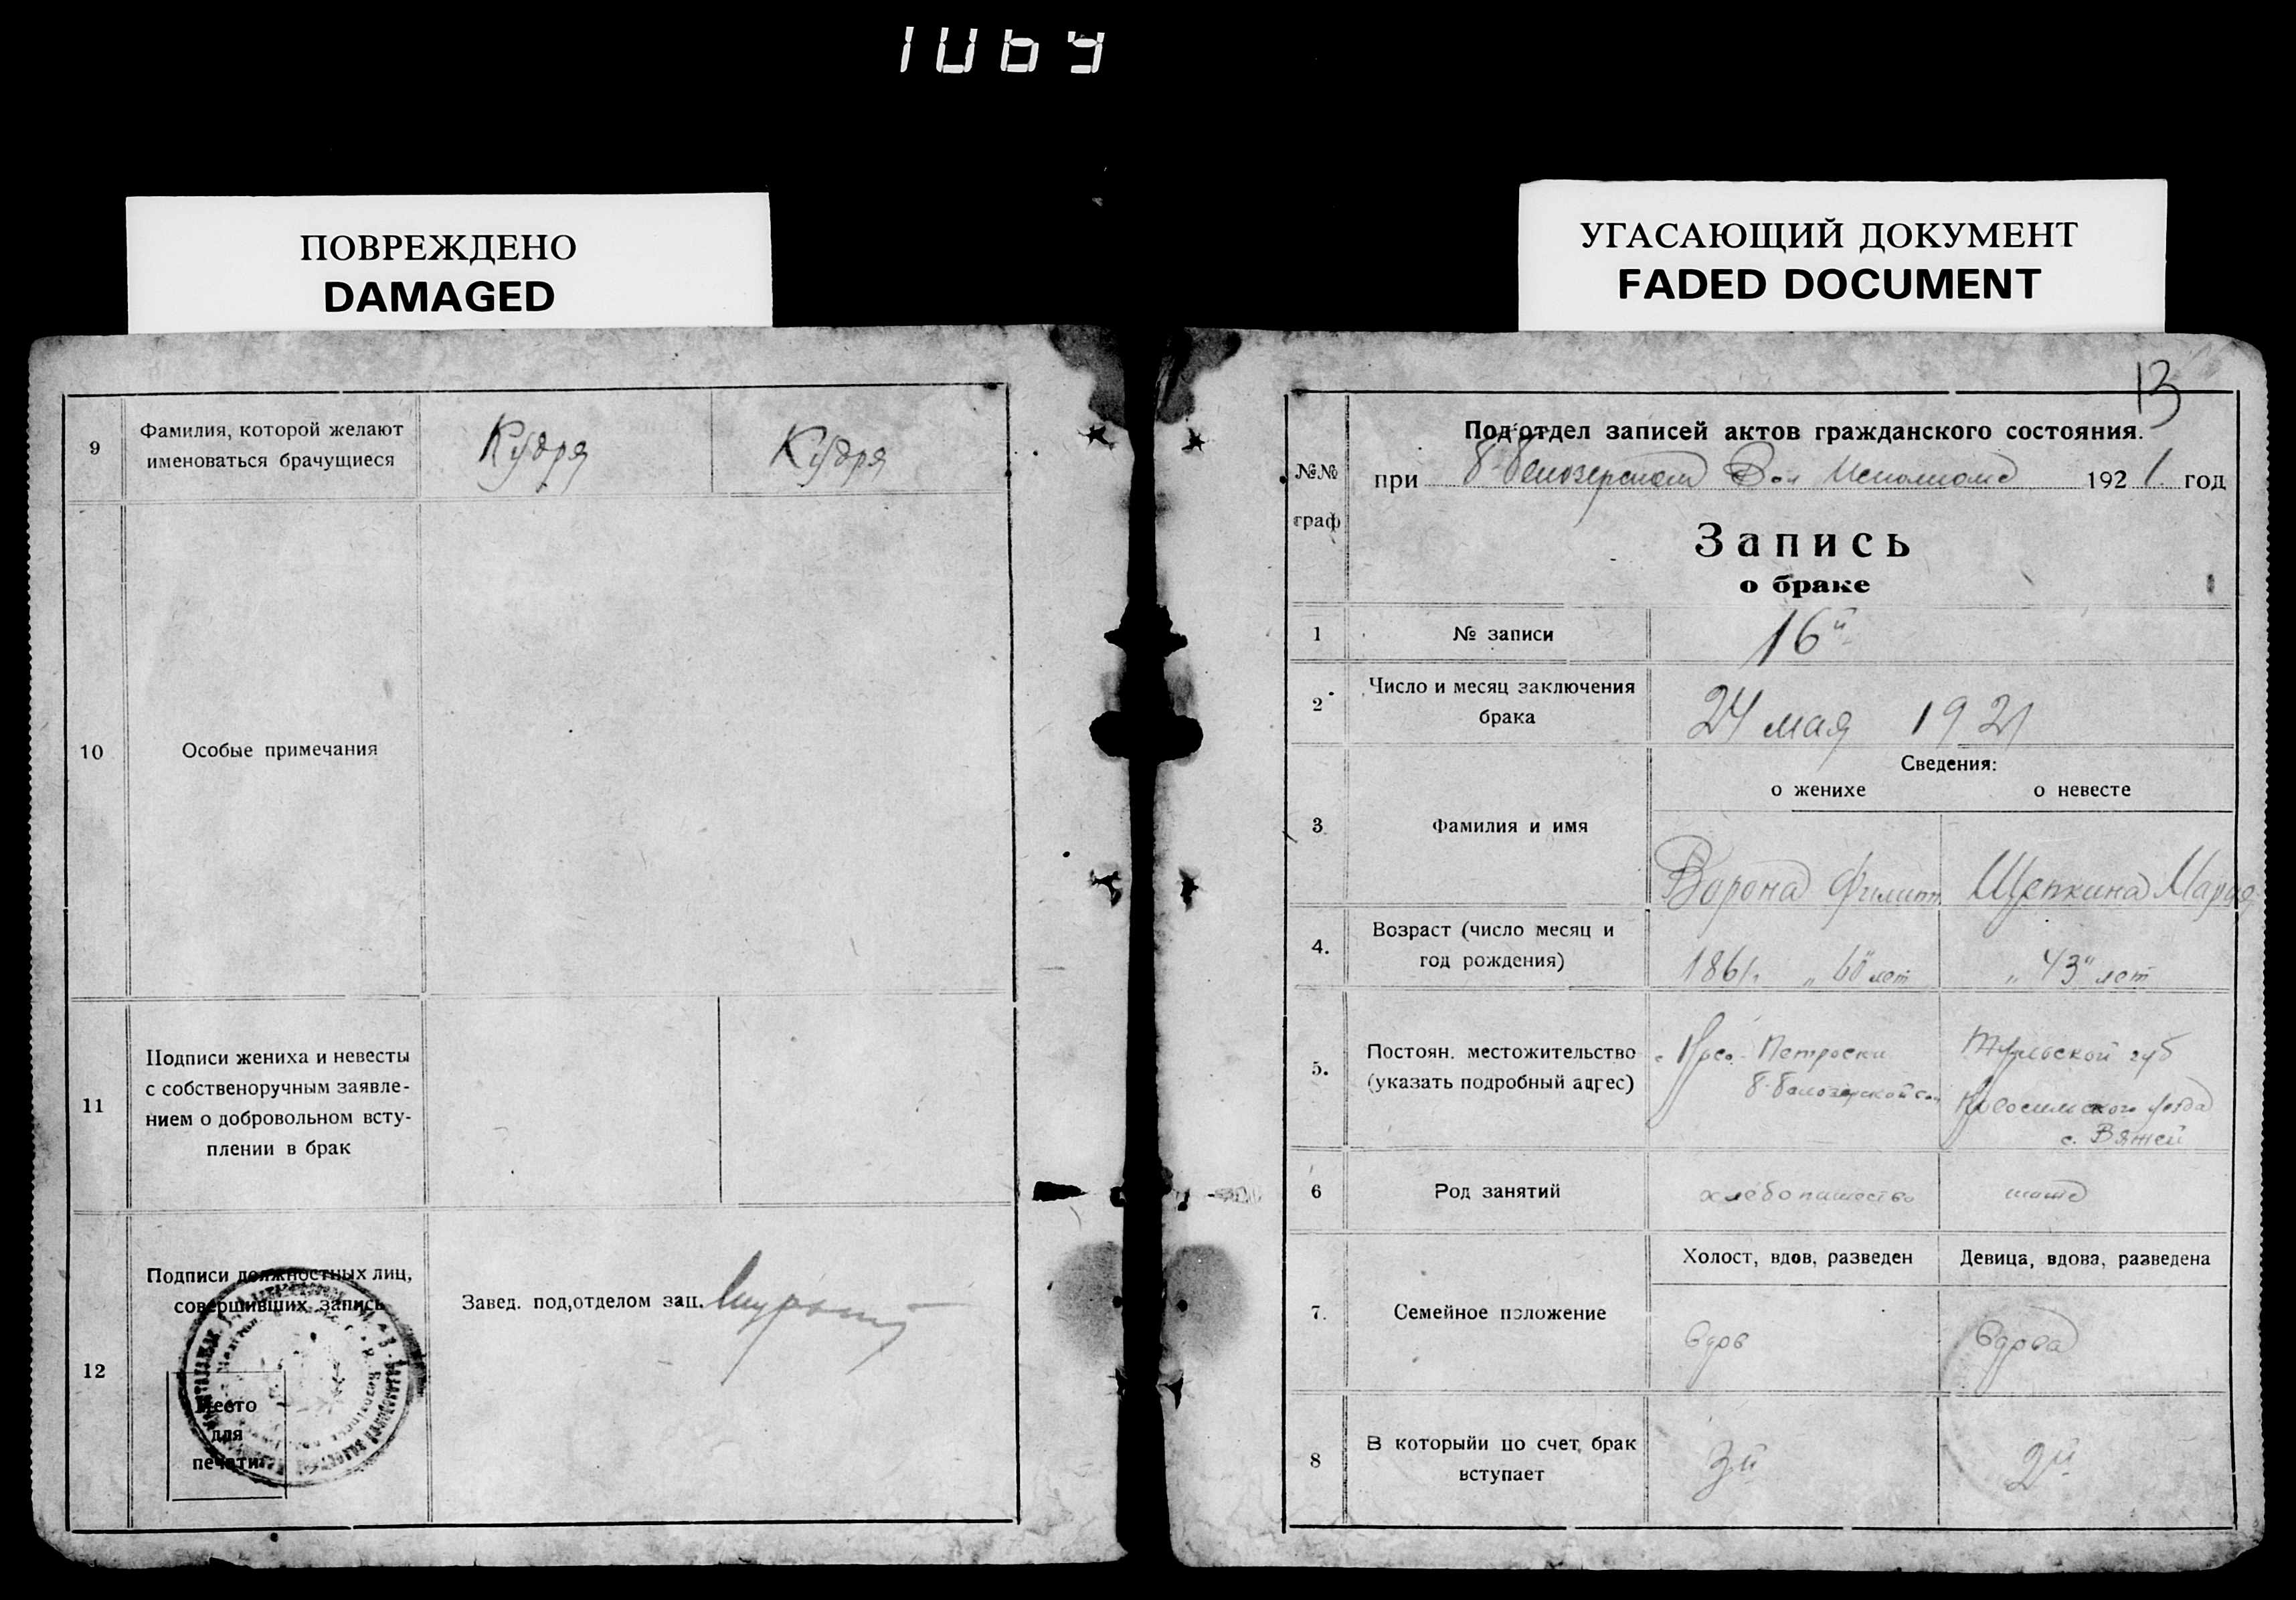 1069
ПОВРЕЖДЕНО
DAMAGED
УГАСАЮЩИЙ ДОКУМЕНТ
FADED DOCUMENT
9
Фамилия, которой желают
именоваться брачущиеся
Кудря
Кудря
10
Особые примечания
11
Подписи жениха и невесты
с собственоручным заявле-
нием о добровольном всту-
плении в брак
12
Подписи должностных лиц,
совершивших запись
Место
для
печати
Завед. под,отделом зап.
13
№№
граф
Под'отдел записей актов гражданского состояния.
при Б-Белозерском Вол Исполкоме 1921 год
Запись
о браке
1
№ записи
16й
2
Число и месяц заключения
брака
24 мая 1921
Сведения:
о женихе
о невесте
3
Фамилия и имя
Ворона Филипп
Щепкина Мария
4.
Возраст (число месяц и
год рождения)
1861г. „60" лет
„43" лет
5.
Постоян. местожительство
(указать подробный адрес)
Б-Белозерской
Тульской губ
Новосильского уезда
с. Вяжей
6
Род занятий
хлебопашество
7.
Семейное положение
Холост, вдов, разведен
Девица, вдова, разведена
вдов
вдова
8
В которыйи по счет, брак
вступает
3й
2й